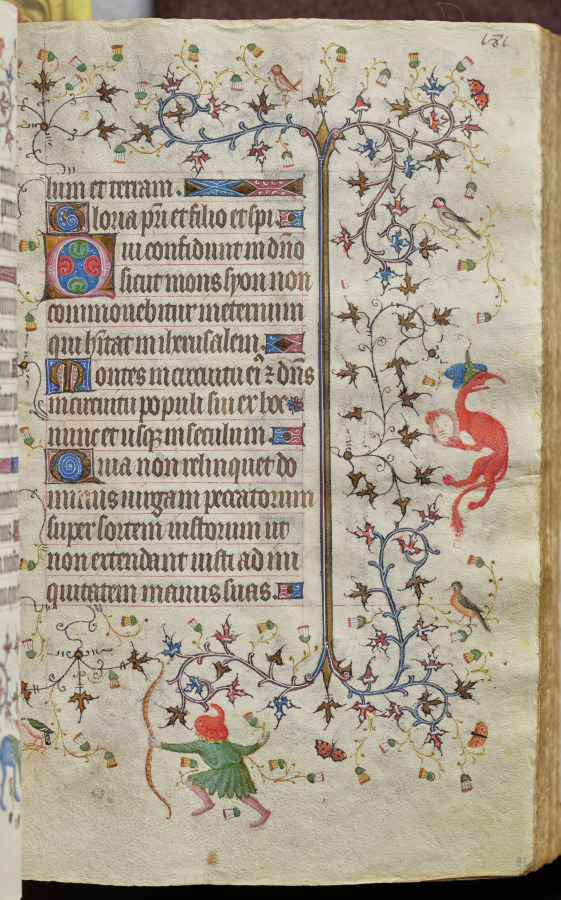 181
lum et terram.
Gloria pri et filio et spi.
Qui confidunt in dno
sicut mons syon non
commouebitur in eternum
qui hitat in iherusalem.
Montes in circuitu ei⁹ ⁊ dns
in circuitu populi sui ex hoc
nunc et usqꝫ in seculum.
Quia non relinquet do
minus uirgam peccatorum
super sortem iustorum ut
non extendant iusti ad ini
quitatem manus suas.
91